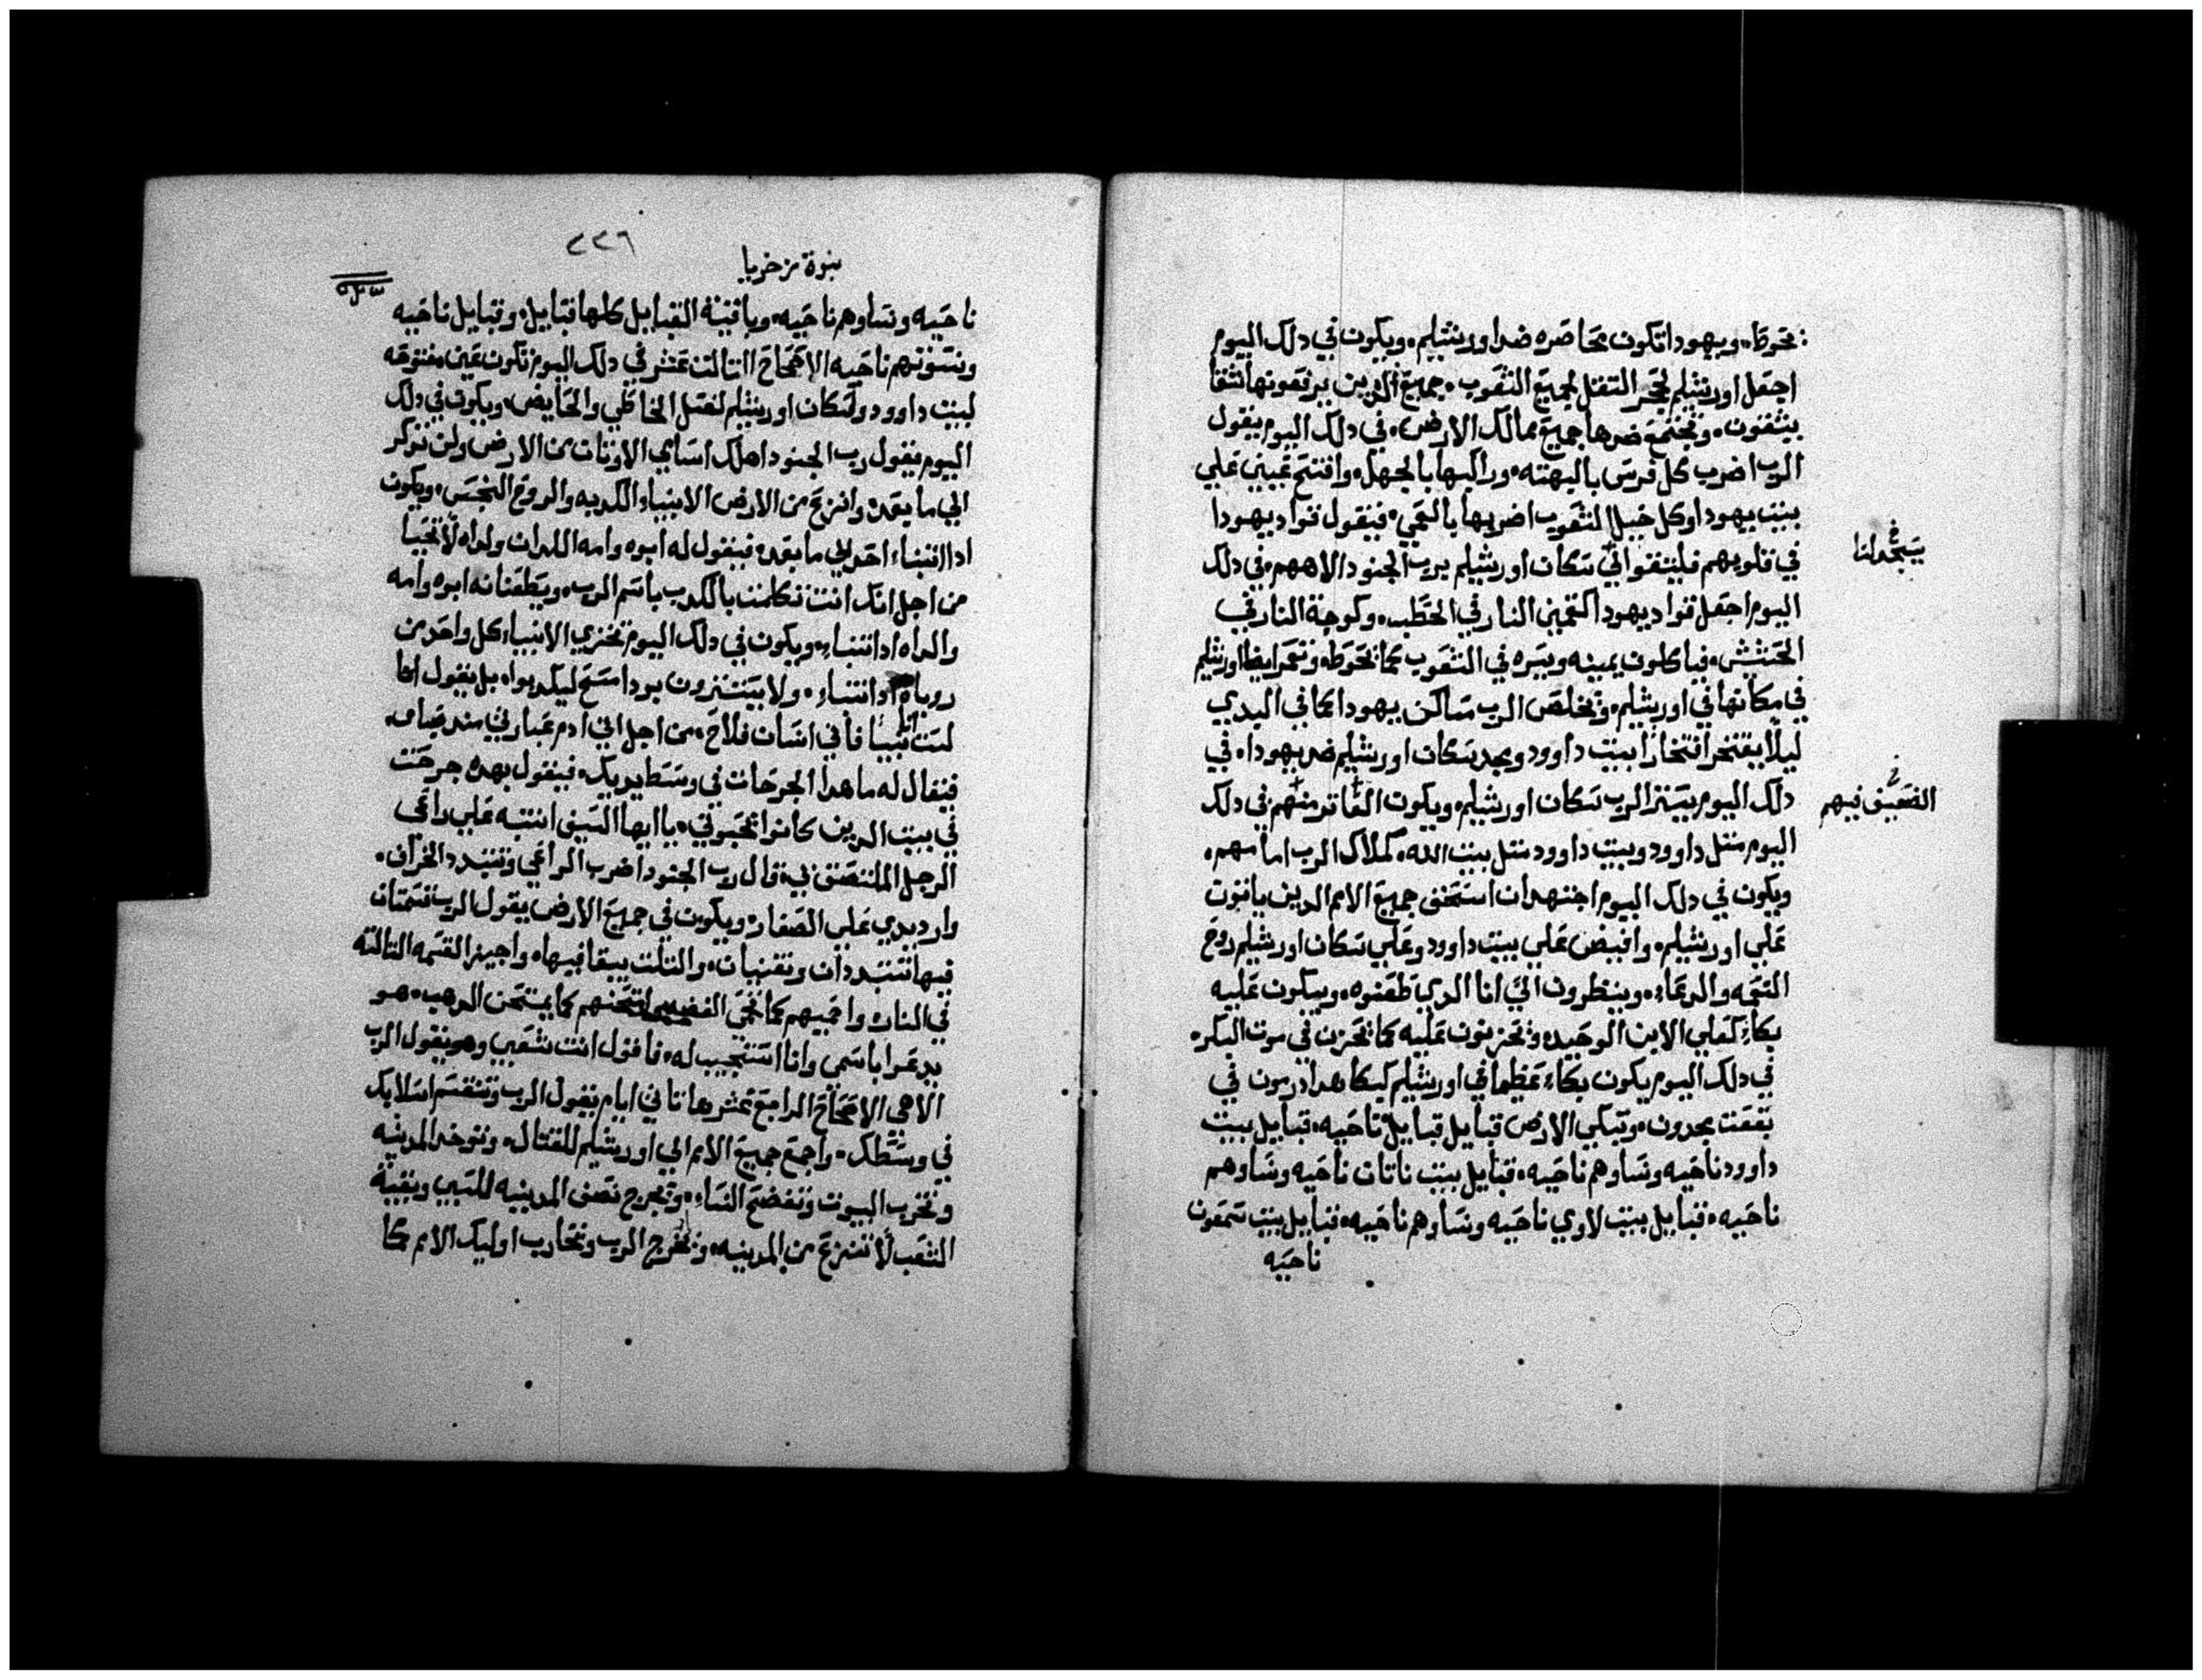 محوطه، ويهودا تكون محاصره ضد اورشليم، ويكون في دلك اليوم
اجعل اورشليم لحجر التقل لجميع الشعوب، جميع الدين يرفعونها شقا
يشقون، وتجتمع ضدها جميع ممالك الارض، في دلك اليوم يقول
الرب اضرب كل فرس بالبهته، وراكبها بالجهل، وافتح عيني علي
بيت يهودا وكل خيل الشعوب اضربها بالعمي، فيقول قواد يهودا
في قلوبهم فليتقوا لي سكان اورشليم برب الجنود الاههم، في دلك
يتجدلنا
اليوم اجعل قواد يهودا كتمين النار في الحطب، وكوجة النار في
الحشيش، فياكلون يمينه ويسره في الشعوب كما تحوطه، وتعمر ايضا اورشليم
في مكانها في اورشليم، ويخلص الرب مساكن يهودا كما في البدي
ليلا يفتخر افتخارا بيت داوود ومجد سكان اورشليم ضد يهودا، في
دلك اليوم يستر الرب سكان اورشليم، ويكون العاتر منهم في دلك
الضعيف فيهم
اليوم متل داوود وبيت داوود متل بيت الله، كملاك الرب امامهم،
ويكون في دلك اليوم اجتهد ان اسحق جميع الامم الدين ياتون
علي اورشليم، وافيض علي بيت داوود وعلي سكان اورشليم روح
النعمه والدعاء، وينظرون الي انا الدي طعنوه، ويبكون عليه
بكاء كعلي الابن الوحيد، وتحزنون عليه كما تحزن في موت البكر،
في دلك اليوم يكون بكاء عظيما في اورشليم كبكا هدادرمون في
بقعت مجدون، وتبكي الارض قبايل قبايل ناحيه، قبايل بيت
داوود ناحيه ونساوهم ناحيه، قبايل بيت ناتان ناحيه ونساوهم
ناحيه، قبايل بيت لاوي ناحيه ونساوهم ناحيه، قبايل بيت شمعون
ناحيه
٢٢٦
نبوة زخريا
ناحيه ونساوهم ناحيه، وباقية القبايل كلها قبايل، وقبايل ناحيه
ونسوتهم ناحيه الاصحاح التالت عشر في دلك اليوم تكون عين مفتوحه
لبيت داوود ولسكان اورشليم لغسل الخاطي والحايض، ويكون في دلك
اليوم يقول رب الجنود اهلك اسامي الاوتان من الارض ولن تدكر
الي ما بعد، وانزع من الارض الانبياء الكدبه والروح النجس، ويكون
ادا انتبا احد الي ما بعد، فيقول له ابوه وامه اللدان ولداه لا تحيا
من اجل انك انت تكلمت بالكدب باسم الرب، ويطعنانه ابوه وامه
والداه ادا انتباء، ويكون في دلك اليوم تخزي الانبياء كل واحد من
روياه ادا انتباء، ولا يستترون بردا مسح ليكدبوا، بل يقول انا
لست نبيا فاني انسان فلاح، من اجل اني ادم عباري مند صباي،
فيقال له ما هدا الجرحات في وسط يديك، فيقول بهده جرحت
في بيت الدين كانوا تحبوني، يا ايها السيف انتبه علي راعي
الرجل الملتصق بي، قال رب الجنود اضرب الراعي وتتبدد الخراف،
وارد يدي علي الصغار، ويكون في جميع الارض يقول الرب قسمتان
فيها تتبددان وتفنيان، والتلت يبقا فيها، واجيز القسمه التالته
في النار، واحميهم كما تحمي الفضه وامتحنهم كما يمتحن الدهب، هو
يدعوا باسمي وانا استجيب له، فاقول انت شعبي وهو يقول الرب
الاهي الاصحاح الرابع عشر ها تاتي ايام يقول الرب وتنقسم اسلابك
في وسطك، واجمع جميع الامم الي اورشليم للقتال، وتوخد المدينه
وتخرب البيوت وتفضح النساء، وتخرج نصف المدينه للسبي وبقية
الشعب لا تنزع من المدينه، وتخرج الرب وتحارب اوليك الامم كما